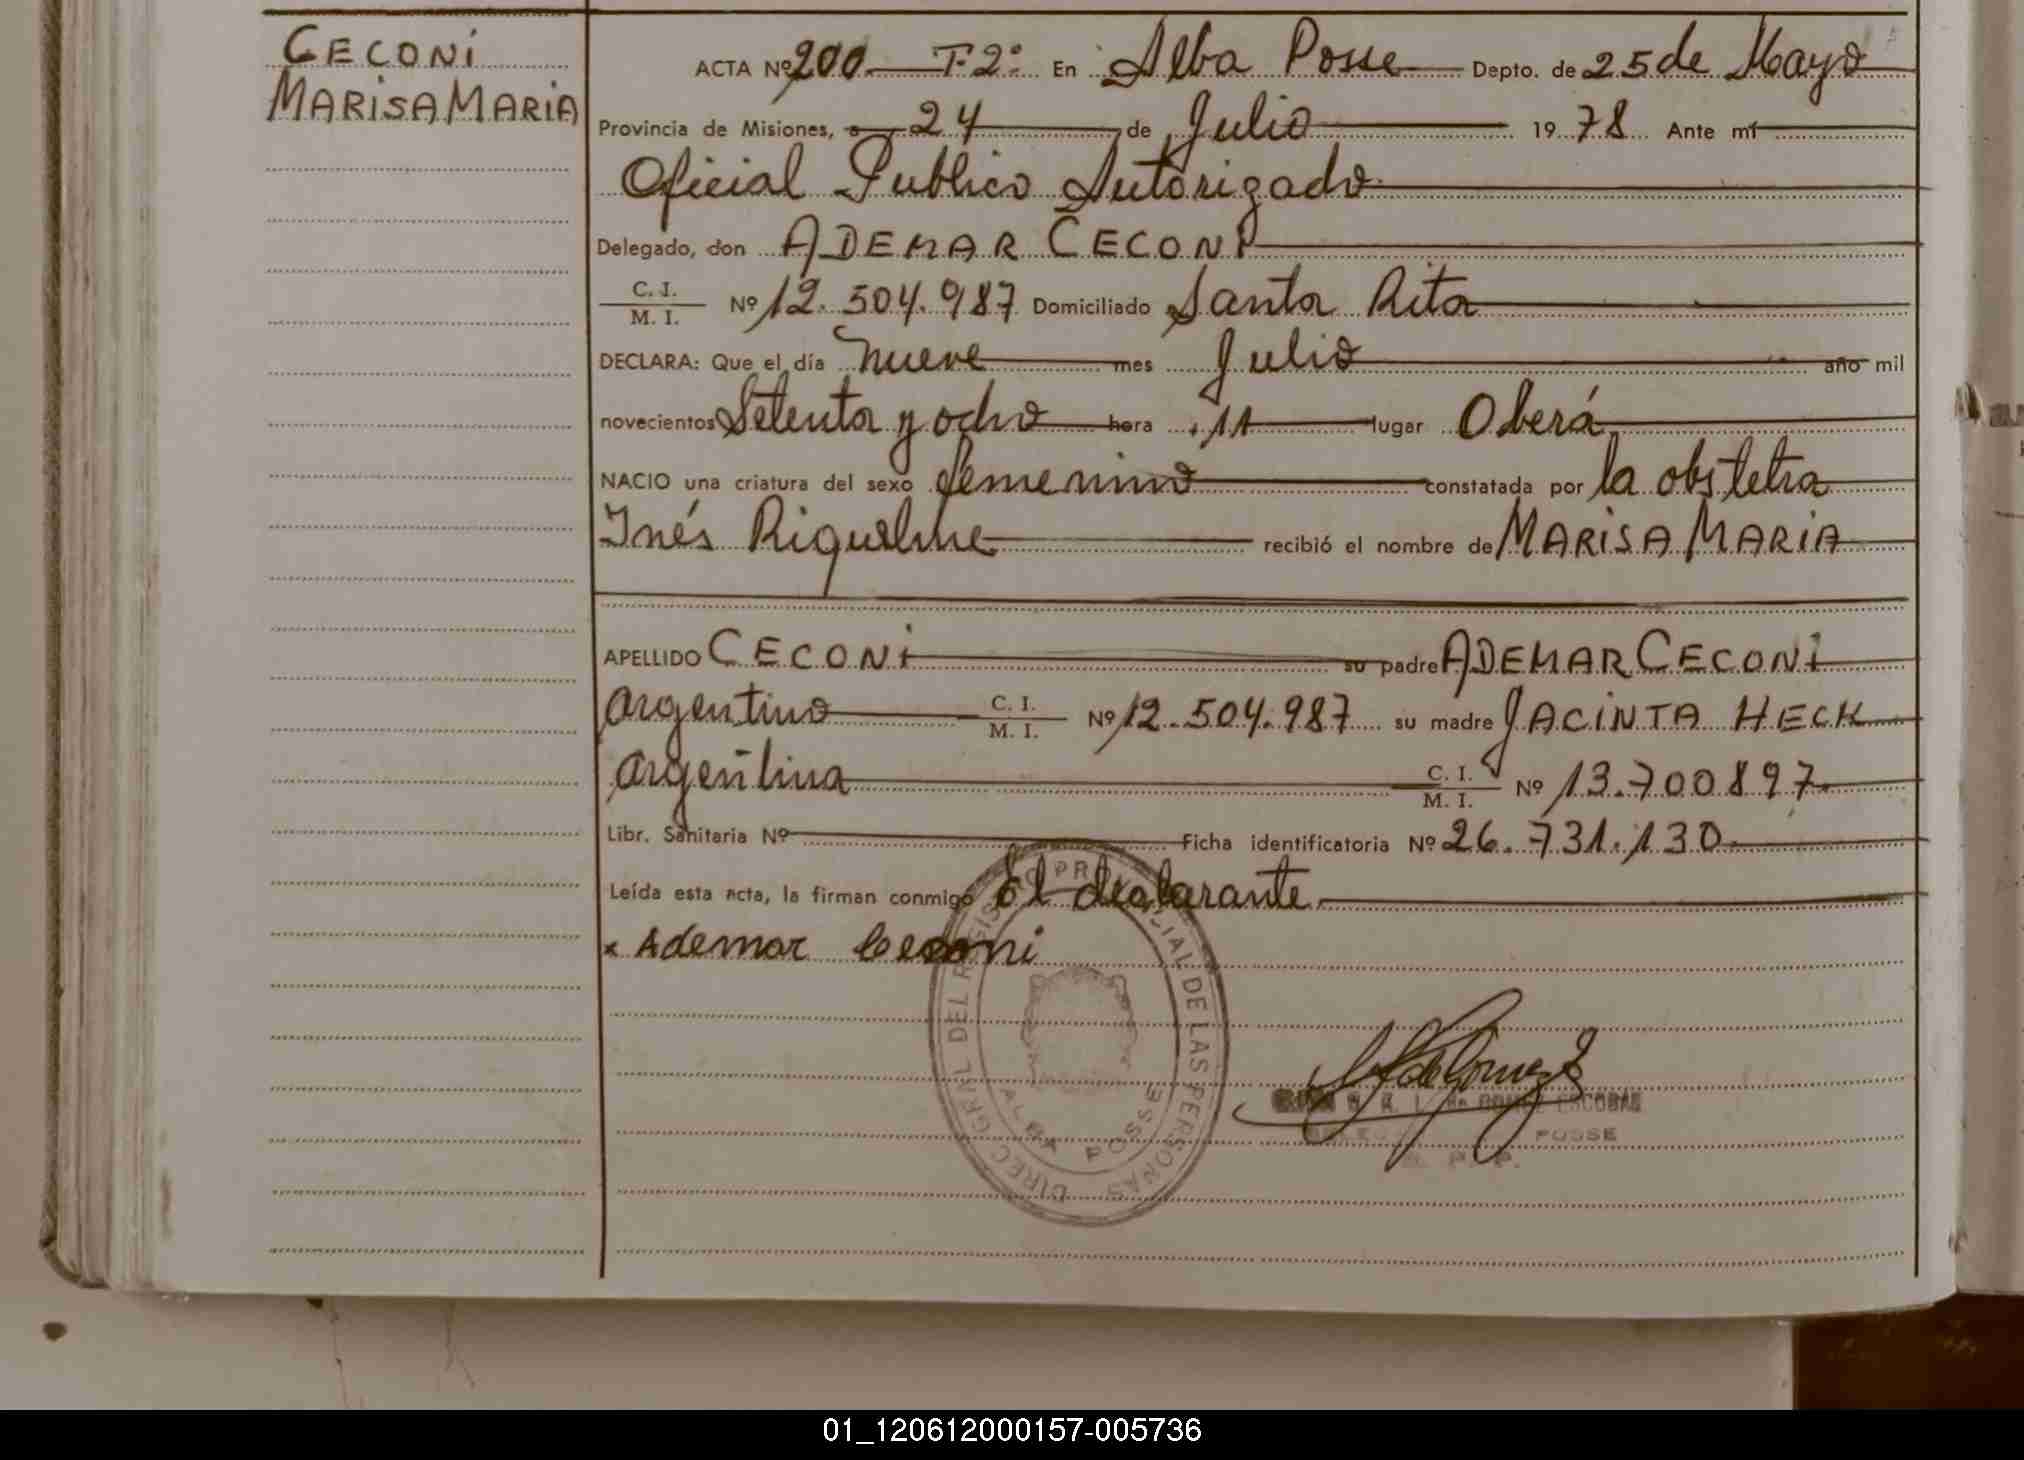 CECONI
MARISA MARIA
ACTA Nº 200 T-2º En Alba Posse Depto. de 25 de Mayo
Provincia de Misiones, a 24 de Julio 19 78 Ante mí
Oficial Publico Autorizado
Delegado, don ADEMAR CECONI
C. I.
M. I. Nº 12.504.987 Domiciliado Santa Rita
DECLARA: Que el día nueve mes Julio año mil
novecientos Setenta y ocho hora 11 lugar Oberá
NACIO una criatura del sexo femenino constatada por la obstetra
Inés Riquelme recibió el nombre de MARISA MARIA
APELLIDO CECONI su padre ADEMAR CECONI
argentino C. I. M. I. Nº 12.504.987 su madre JACINTA HECK
argentina C. I. M. I. Nº 13.700897
Libr. Sanitaria Nº Ficha identificatoria Nº 26.731.130
Leída esta acta, la firman conmigo El declarante
x Ademar Ceconi
DIREC. GRAL. DEL REGISTRO PROVINCIAL DE LAS PERSONAS
ALBA POSSE
GOMEZ ESCOBAR
POSSE
01_120612000157-005736